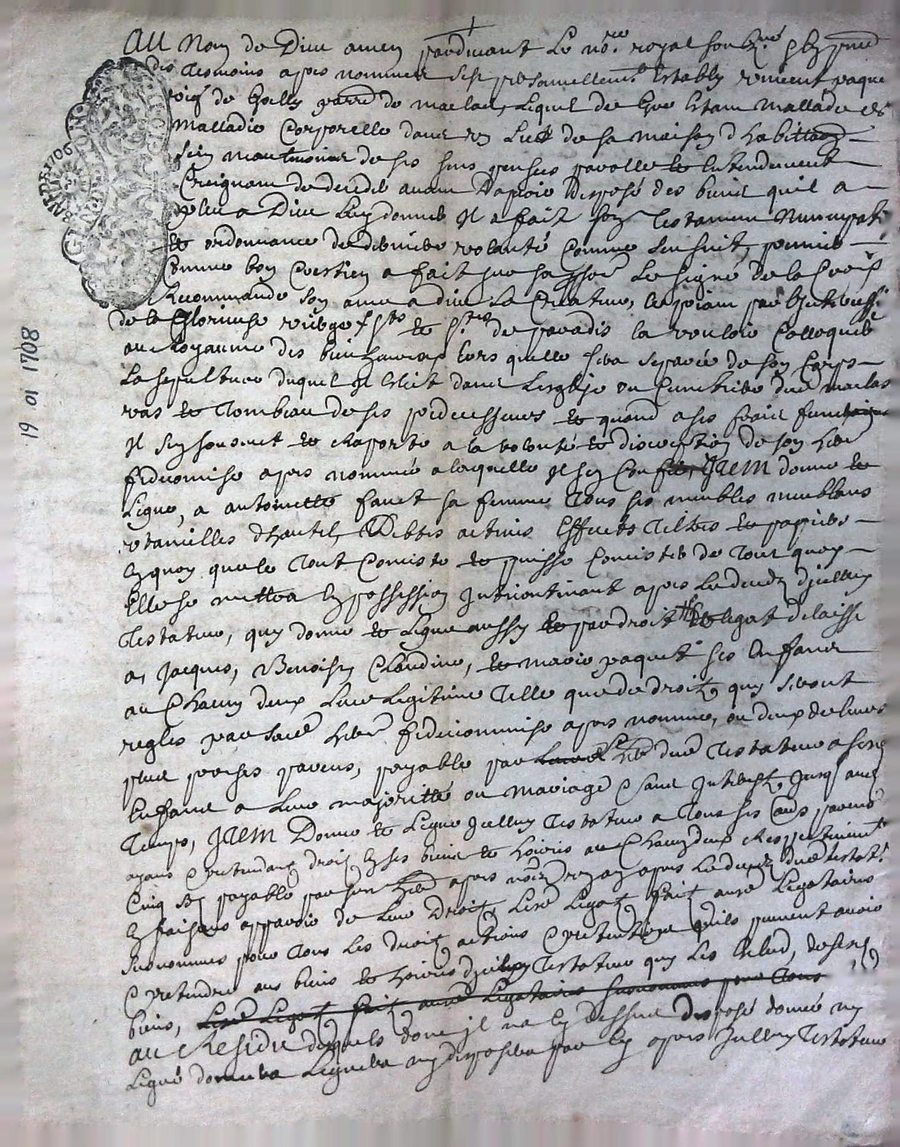 AU Nom de Dieu amen pardevant Le no.re royal soub.né
des Tesmoins apres nommes personnellement Estably vincent paque
de Goelly de maclas, Lequel de Gre Estant Mallade de
Malladie Corporelle dans un Lict de sa maison d habittaon
sein de ses sens pensee parolle et Entendement
Creignant de deceder avant D'avoir disposé des biens quil a
pleu a Dieu Luy donner Il a fait son Testament Nuncupatif
et ordonnance de derniere volonté Comme Sensuit, premier
Comme bon Crestien a fait sur sa personne Le signe de la Croix
Recommandé son ame a dieu Le Createur, Le priant par
de la Glorieuse vierge et de paradis la vouloir Colloquer
au Royaume des bienheureux Lors quelle sera separée de son Corps
La sepulture duquel Il Eslit dans Lesglise ou Cimetiere dud maclas
vas et Tombeau de ses predecesseurs et quand a ses frais funeraires
Il sen sousmet et raporte a la volonté et discretion de son her
fideicomise apres nommée a laquelle Il sen Confie, ITEM donne et
Legue, a antoinette fanet sa femme Tous ses meubles meublans
vtancilles dhautel, Debtes actives Effects Tiltres et papiers
En quoy que le Tout Consiste et puisse Consister de Tout quoy
Elle se mettra En possession Incontinant apres Le deceds djcelluy
Testateur, quy donne et Legue aussy et par droit et legat delaisse
a Jacques, Benoist, Claudine, et marie paquet ses Enfans
au Chacun deux Leur Legitime Telle que de droit, quy seront
regles par sad her fideicommise apres nommee, ou deux de leurs
plus proches parens, payable par her dud Testateur a sesd
Enfans a Leur majorité ou mariage Sans Interest Jusq aud
Temps, ITEM Donne et Legue Jcelluy Testateur a Tous ses aus parens
ayans pretendans droit En ses biens et hoiries au Chacun deux Respectivement
Cinq sols payable par son her apres nommé un an apres Le deceds dud Testat.r
En faisans apparoir de Leur Droit, Lesd Legats fait ausd Legataires
Surnommes pour Tous Les droits actions pretentions quils peuvent avoir
pretendre aux biens et hoiries djcelluy Testateur quy Les Exclud, de sesd
biens, Lesd Legats fait ausd Legataires Surnommes pour Tous
AU Residu desquels dont Jl na Cy dessus disposé donné ny
Legué donnera Leguera ny disposera par Cy apres Jcelluy Testateur
GEN
1706
19 01 1708